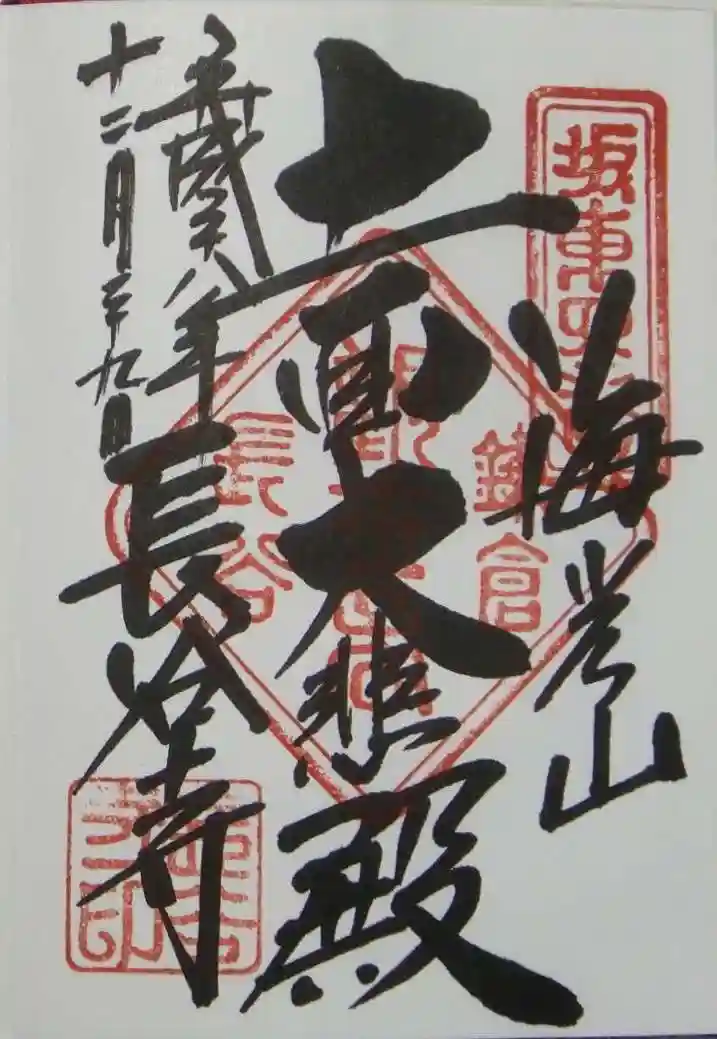 坂東四
海光山
十一面大悲殿
鎌倉
長谷
平成廿八年
十二月二十九日
長谷寺
之印